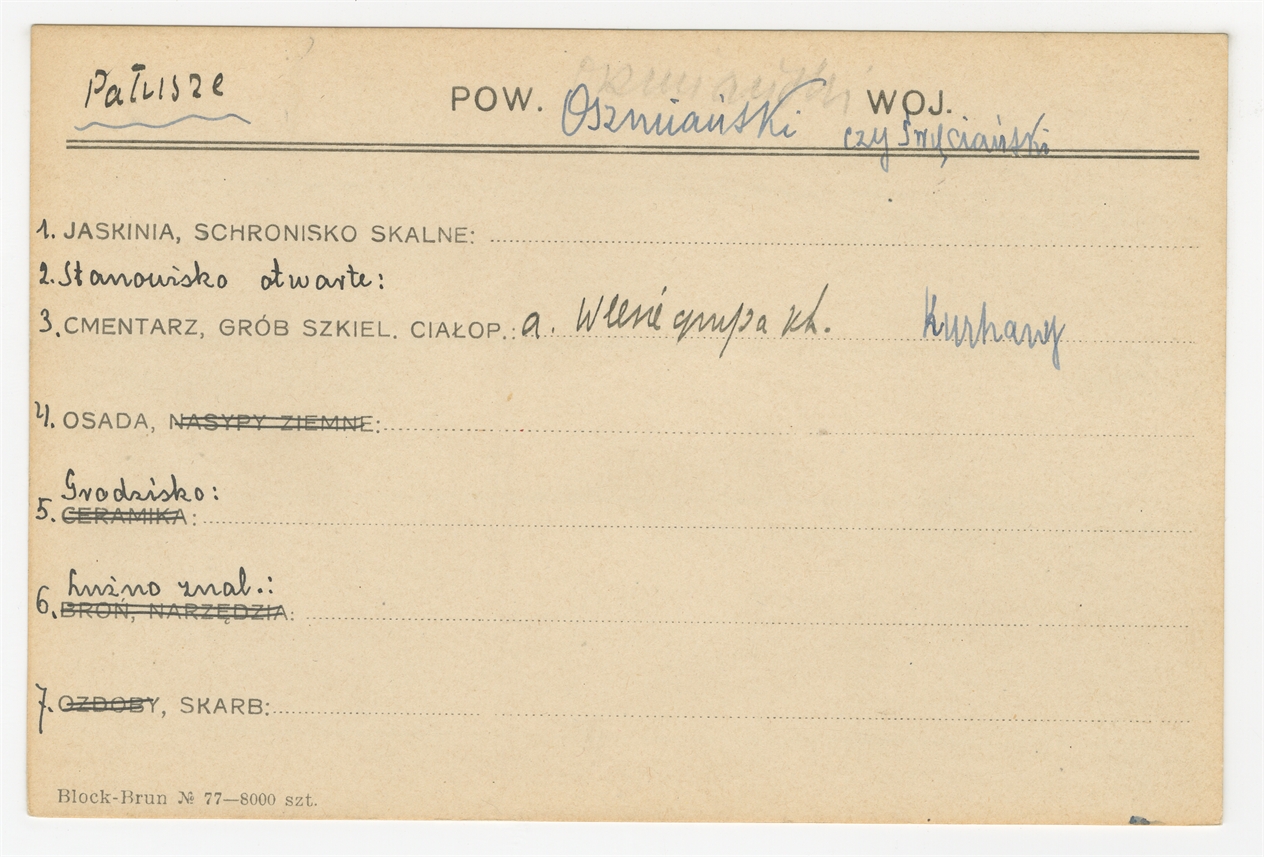 Pałusze POW. Oszmiański WOJ.
czy Święciański
1. JASKINIA, SCHRONISKO SKALNE:
2. Stanowisko otwarte:
3. CMENTARZ, GRÓB SZKIEL. CIAŁOP.: a. W lesie grupa kh. Kurhany
4. OSADA, NASYPY ZIEMNE:
Grodzisko:
5. CERAMIKA:
Luźno znal.:
6. BROŃ, NARZĘDZIA:
7. OZDOBY, SKARB:
Block-Brun № 77—8000 szt.